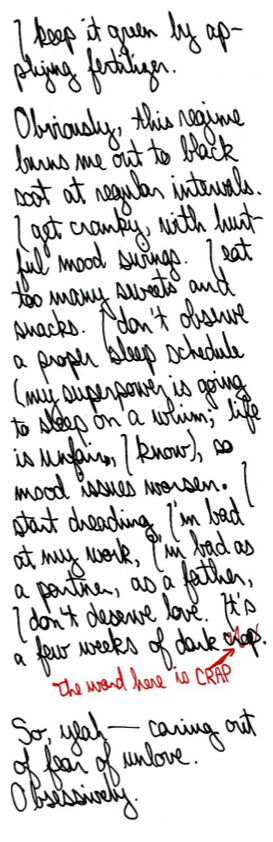 I keep it green by ap-
plying fertilizer.
Obviously, this regime
burns me out to black
soot at regular intervals.
I get cranky, with hurt-
ful mood swings. I eat
too many sweets and
snacks. I don't observe
a proper sleep schedule
(my superpower is going
to sleep on a whim; life
is unfair, I know), so
mood issues worsen. I
start dreading I'm bad
at my work, I'm bad as
a partner, as a father,
I don't deserve love. It's
a few weeks of dark crap.
The word here is CRAP
So, yeah — caring out
of fear of unlove.
Obsessively.